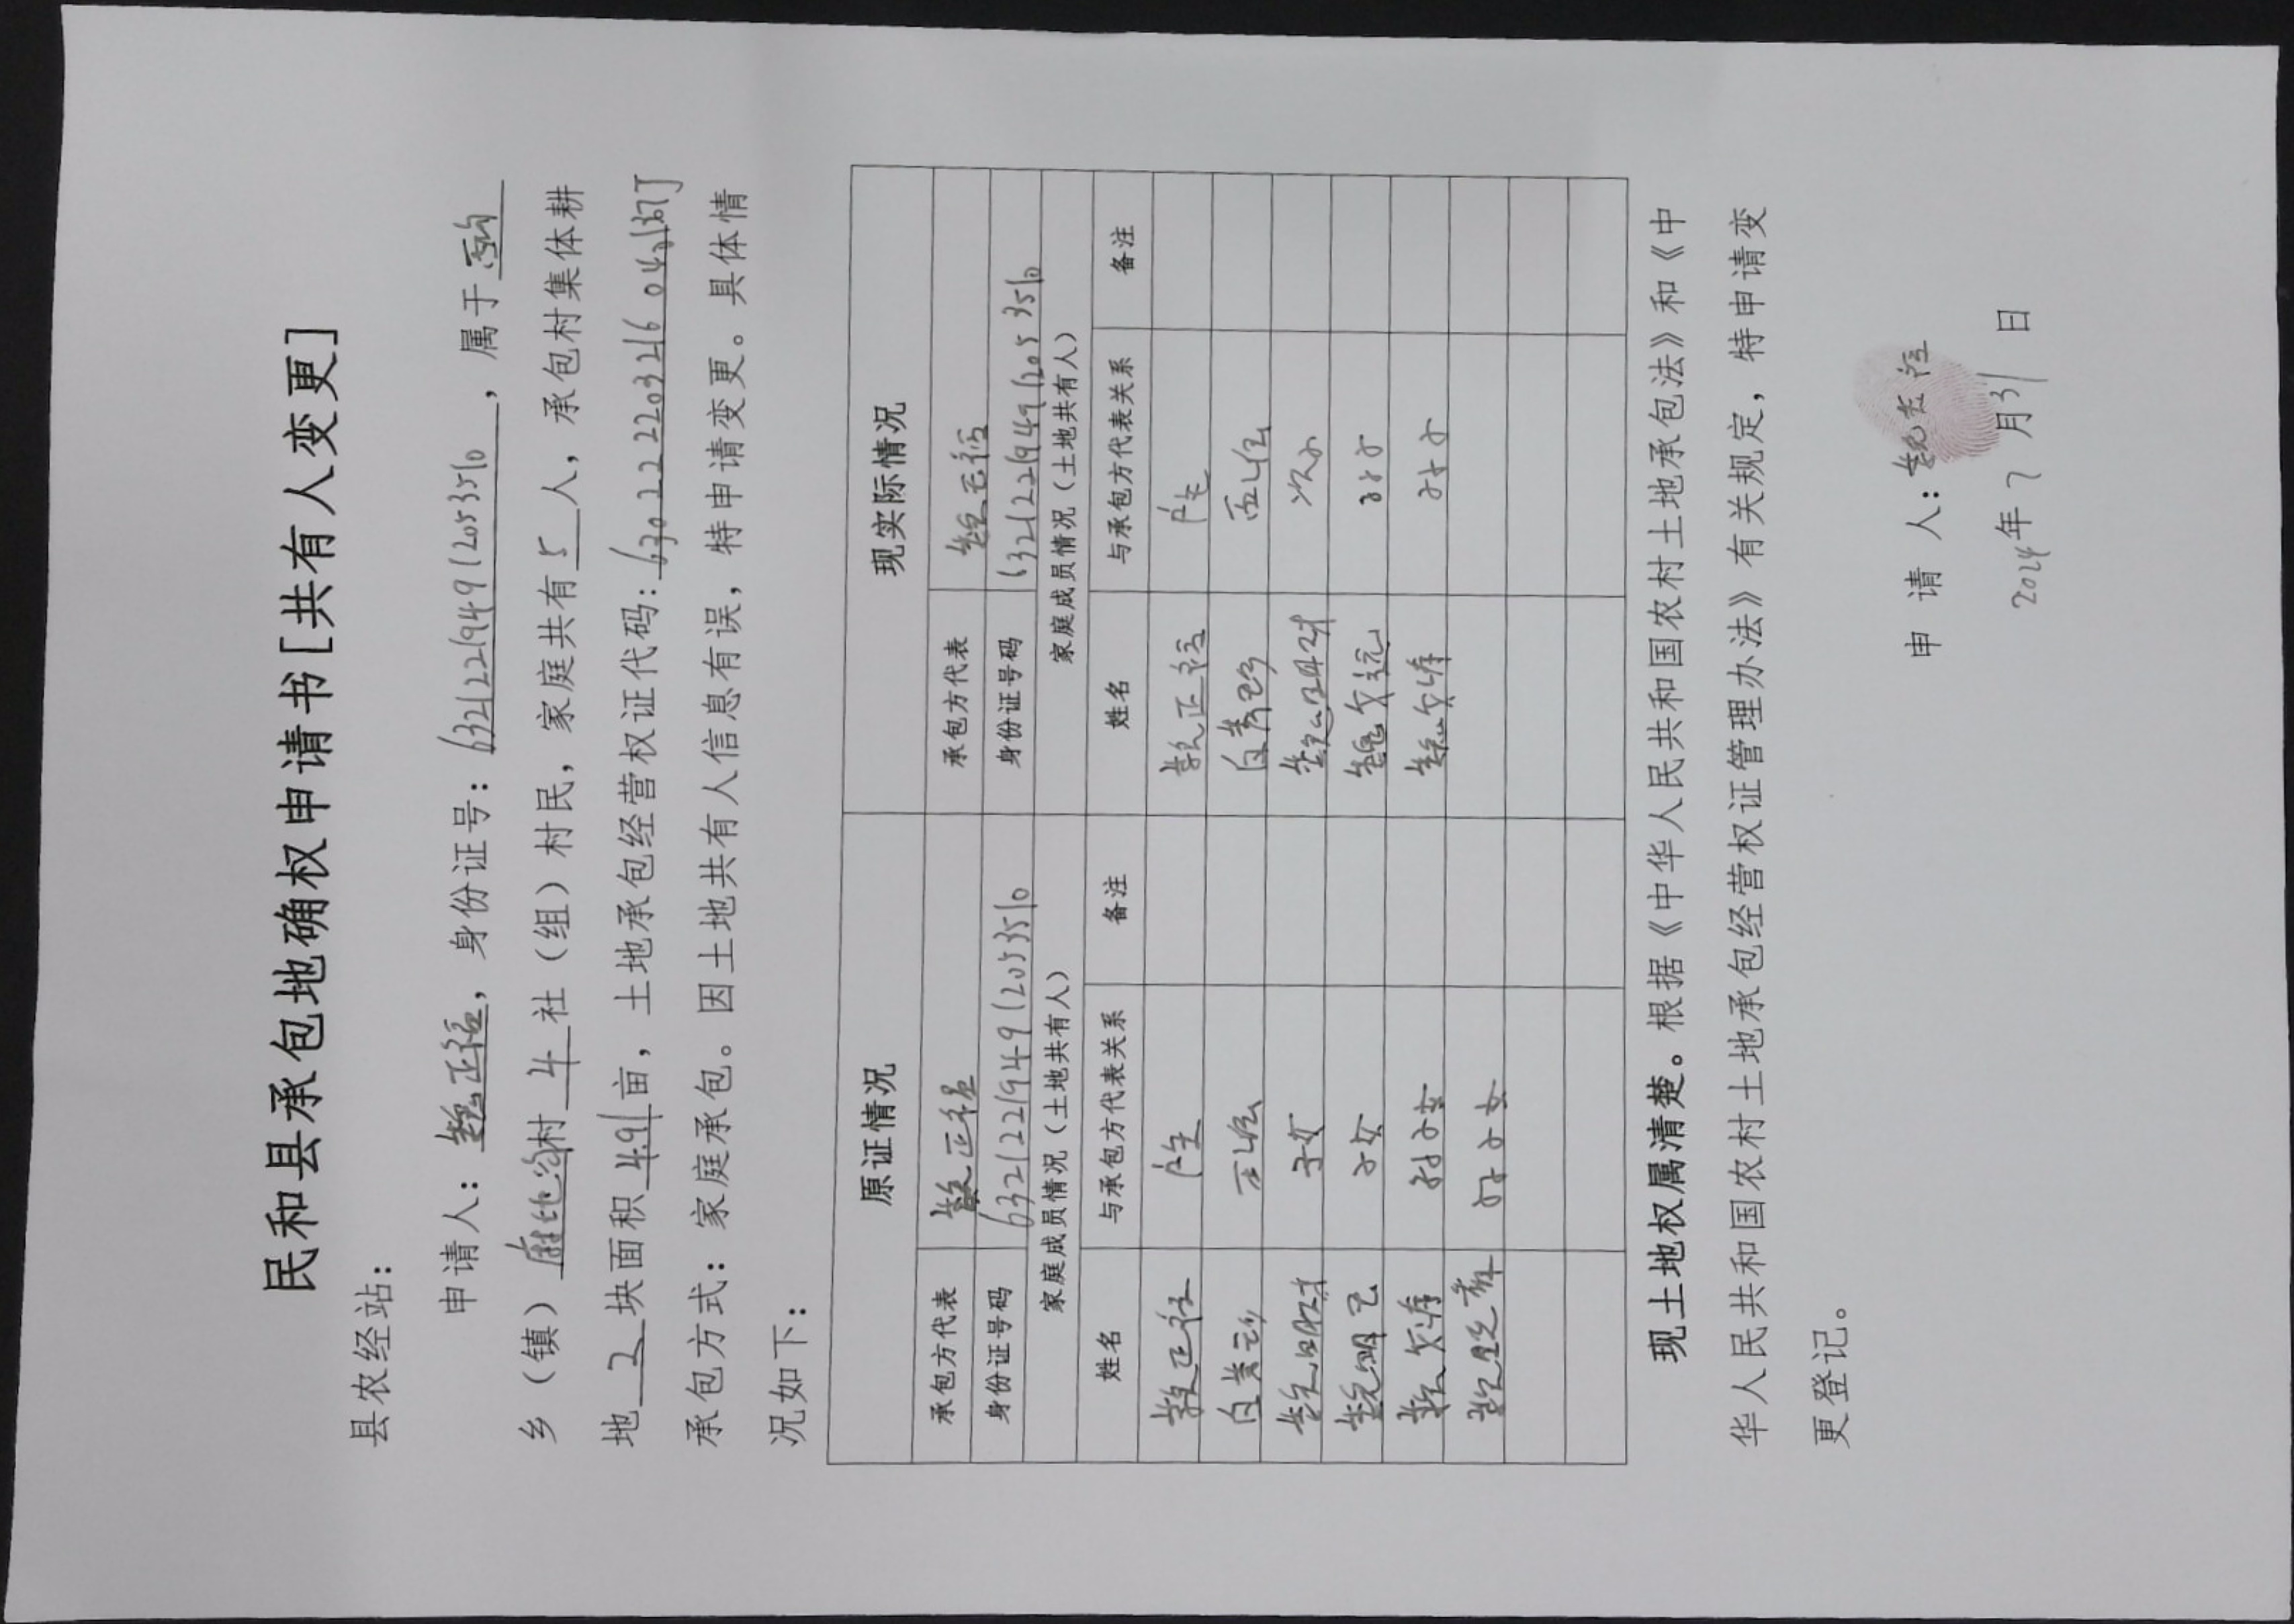 民和县承包地确权申请书[共有人变更]
县农经站：
申请人：魏正福，身份证号：632122194912053510，属于西沟
乡（镇）麻地沟村 4 社（组）村民，家庭共有 5 人，承包村集体耕
地 2 块面积 4.91 亩，土地承包经营权证代码：
承包方式：家庭承包。因土地共有人信息有误，特申请变更。具体情
况如下：
原证情况 现实际情况
承包方代表 魏正福 承包方代表 魏正福
身份证号码 632122194912053510 身份证号码 632122194912053510
家庭成员情况（土地共有人） 家庭成员情况（土地共有人）
姓名 与承包方代表关系 备注 姓名 与承包方代表关系 备注
魏正福 户主 魏正福 户主
白秀珍 配偶 白秀珍 配偶
魏明财 子女 魏明财 次子
魏明 子女 魏 孙子
魏 孙子女 魏 孙子
魏 孙子女
现土地权属清楚。根据《中华人民共和国农村土地承包法》和《中
华人民共和国农村土地承包经营权证管理办法》有关规定，特申请变
更登记。
申 请 人：魏正福
2024年 7 月 31 日